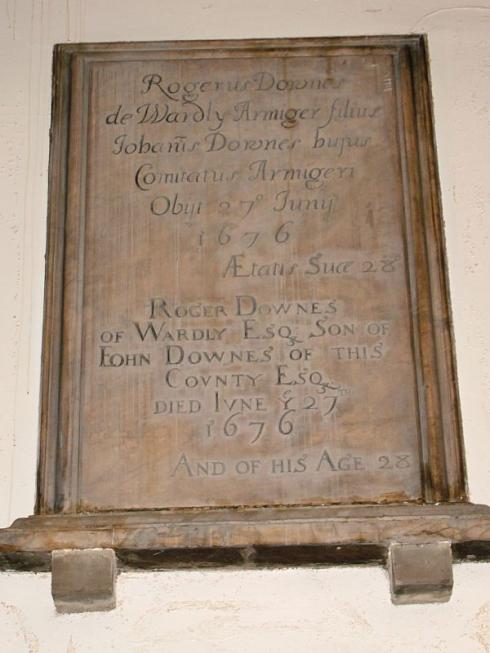 Rogerus Downes
de Wardly Armiger filius
Iohan̄is Downes hujus
Comitatus Armigeri
Obijt 27º Junij
1676
Ætatis Suæ 28
ROGER DOWNES
OF WARDLY ESQ SON OF
IOHN DOWNES OF THIS
COVNTY ESQ
DIED IVNE Yᵉ 27th
1676
AND OF HIS AGE 28